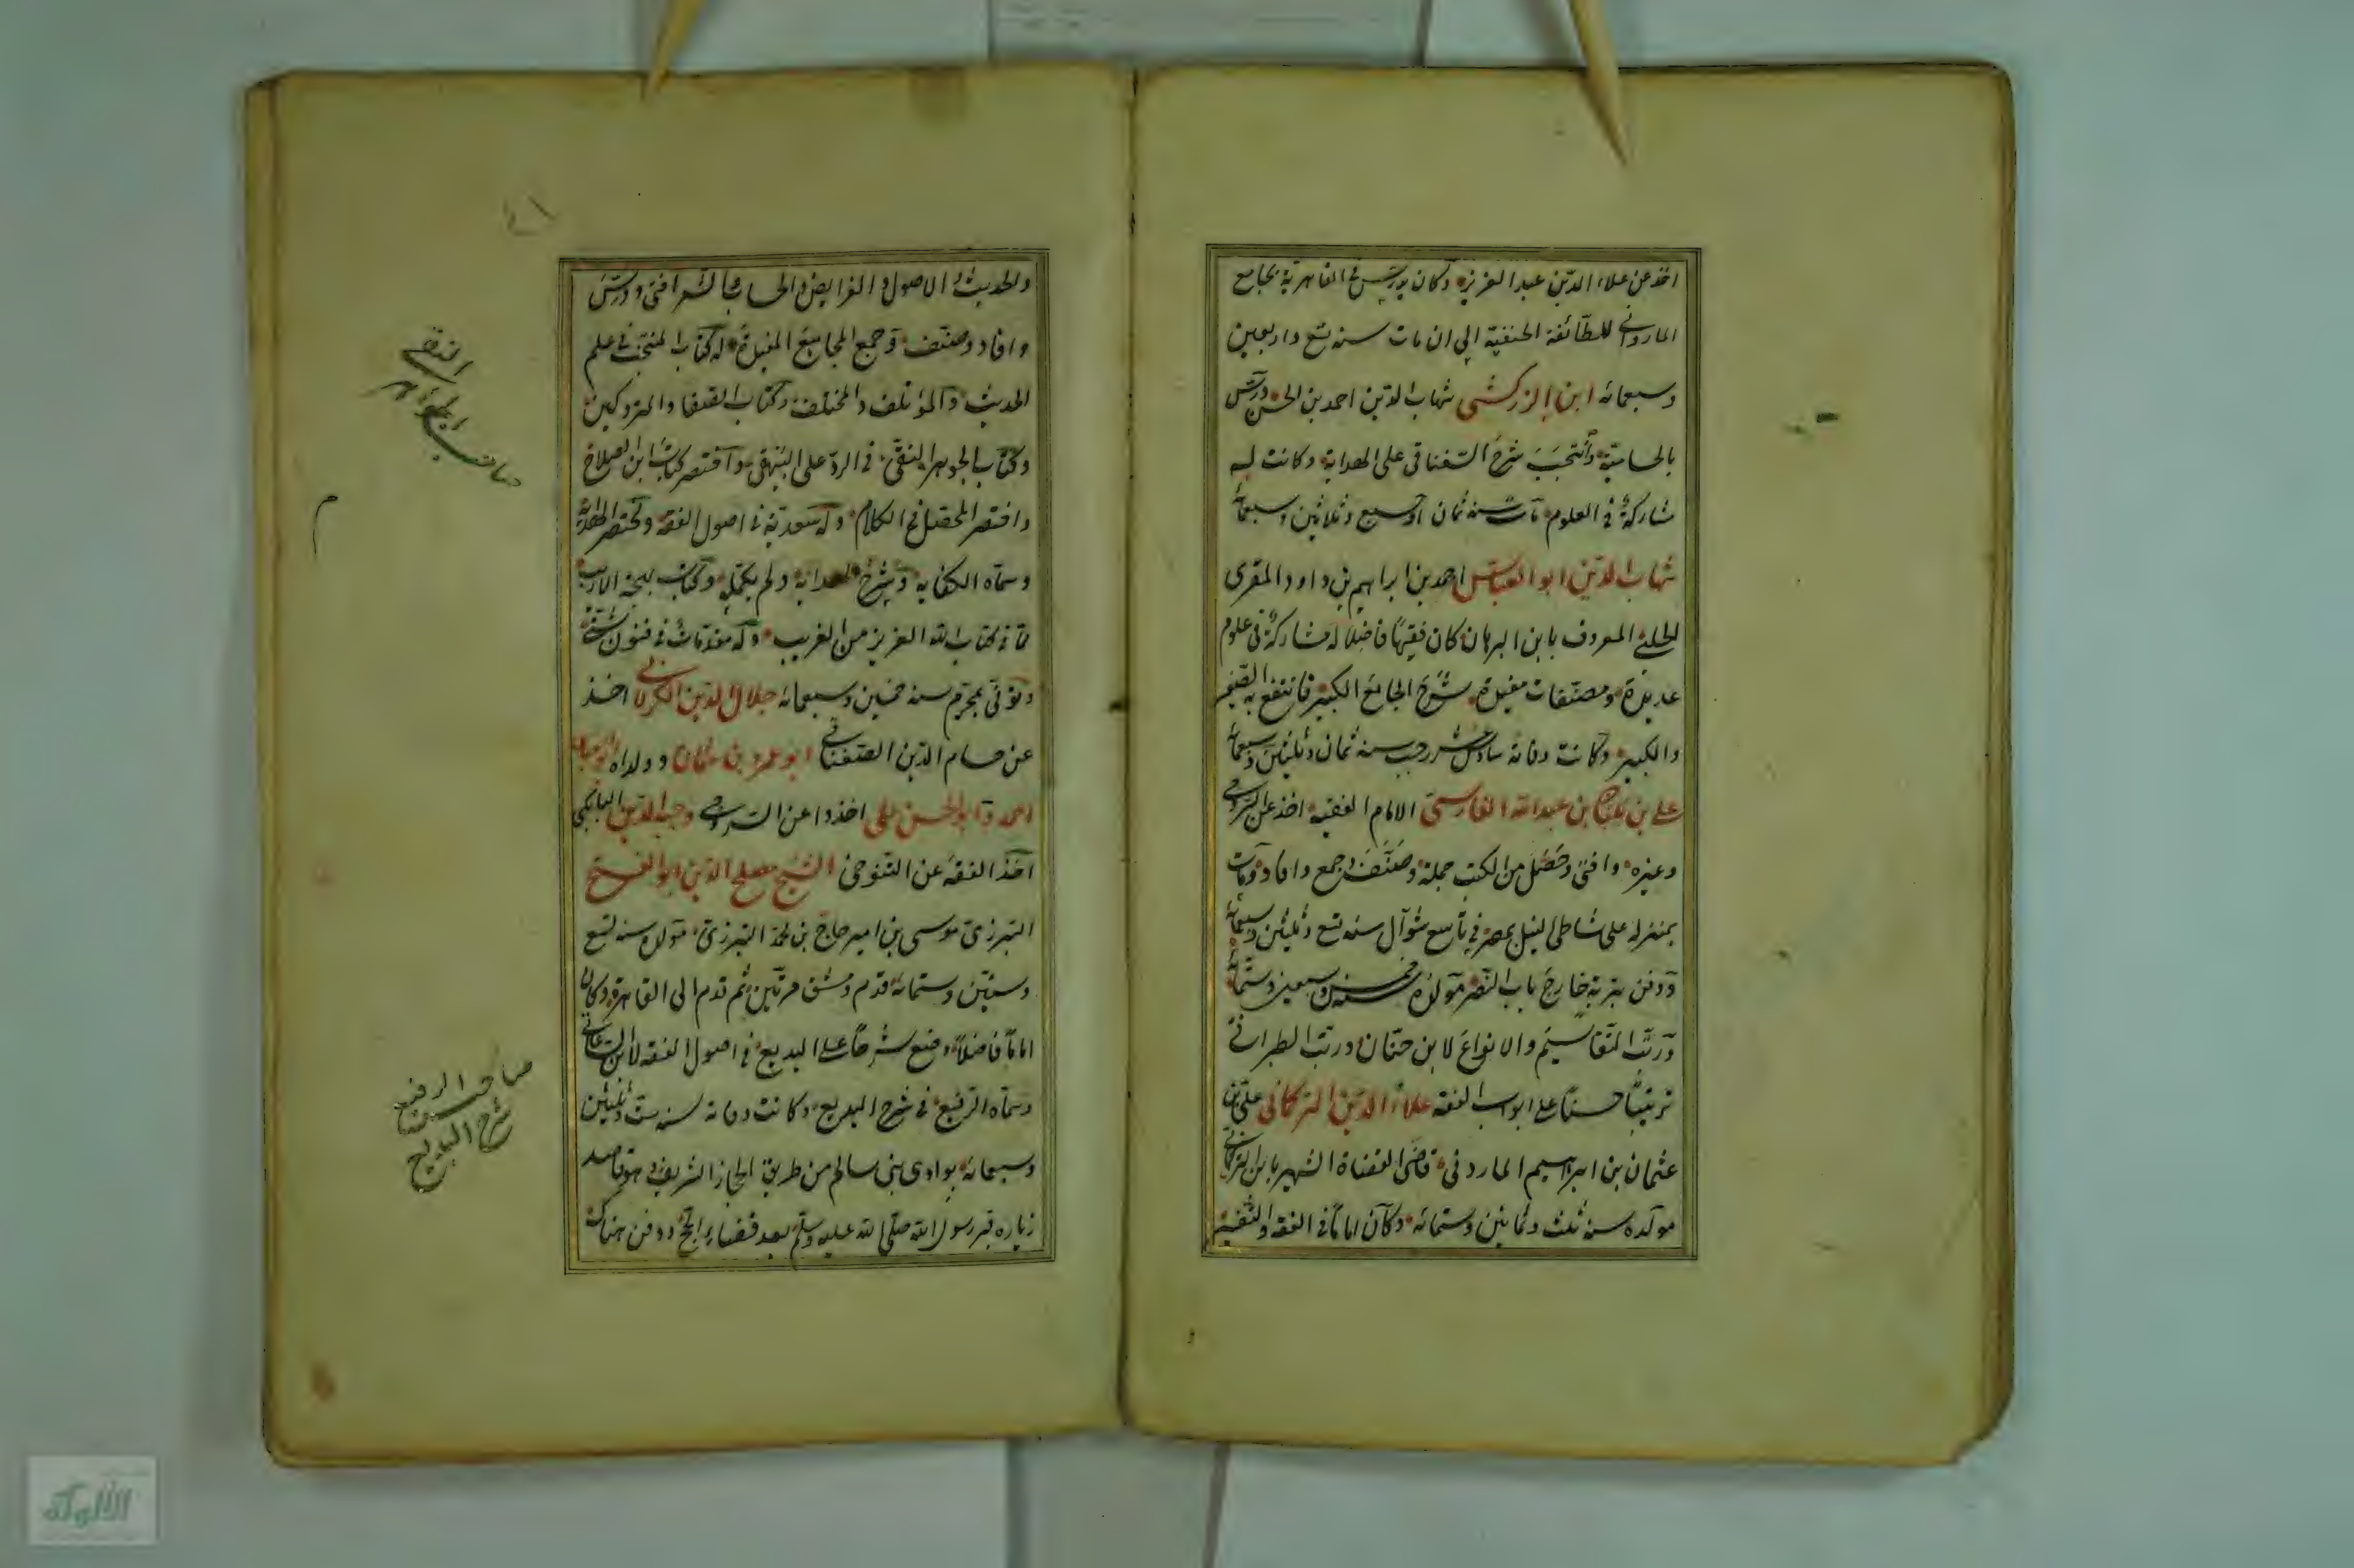 اخذ عن علاء الدين عبد العزيز وكان يدرس في القاهرة بجامع
الماردانى للطائفة الحنفية الى ان مات سنه تسع واربعين
وسبعمائه ابن الزركشى شهاب الدين احمد بن الحسن درس
بالحسامية وانتجب شرح السغناقى على الهداية وكانت له
مشاركة فى العلوم مات سنه ثمان او سبع وثلاثين وسبعمائه
شهاب الدين ابو العباس احمد بن ابراهيم بن داود المقرى
الحلبى المعروف بابن البرهان كان فقيها فاضلا له مشاركة فى علوم
عديدة ومصنفات مفيدة شرح الجامع الكبير فانتفع به الصغير
والكبير وكانت وفاته سادس عشر رجب سنه ثمان وثلثين وسبعمائه
على بن بلبان بن عبد الله الفارسى الامام الفقيه اخذ عن السروجى
وغيره وافتى وحصل من الكتب جملة وصنف وجمع وافاد ومات
بمنزله على شاطئ النيل بمصر فى تاسع شوال سنه تسع وثلثين وسبعمائه
ودفن بتربة خارج باب النصر مولده سنه خمس وسبعين وستمائه
ورتب التقاسيم والانواع لابن حبان ورتب الطبرانى
ترتيبا حسنا على ابواب الفقه علاء الدين التركمانى على بن
عثمان بن ابراهيم الماردنى قاضى القضاة الشهير بابن التركمانى
مولده سنه ثلث وثمانين وستمائه وكان اماما فى الفقه والتفسير
٤١
والحديث والاصول والفرايض والحساب والشعر افتى ودرس
وافاد وصنف وجمع المجاميع المفيدة له كتاب المنتخب فى علم
الحديث والمؤتلف والمختلف وكتاب الضعفا والمتروكين
وكتاب الجوهر النقى فى الرد على البيهقى واختصر كتاب ابن الصلاح
واختصر المحصل فى الكلام وله سعدية فى اصول الفقه ومختصر الهداية
وسماه الكفايه وشرح الهداية ولم يكمله وكتاب بهجة الاريب
مما فى كتاب الله العزيز من الغريب وله مقدمات فى فنون شتى
وتوفى بمحرم سنه خمسين وسبعمائه جلال الدين الكرلانى اخذ
عن حسام الدين الصغناقى ابو عمرو بن عثمان وولداه
احمد وابو الحسن على اخذوا عن السروجى
اخذ الفقه عن التنوخى الشيخ مصلح الدين ابو الفتح
التبرزى موسى بن امير حاج بن محمد التبرزى مولده سنه تسع
وستين وستمائه قدم دمشق مرتين ثم قدم الى القاهرة وكان
اماما فاضلا وضع شرحا على البديع فى اصول الفقه لابن الساعاتى
وسماه الرفيع فى شرح البديع وكانت وفاته سنه ست وثلثين
وسبعمائه بوادى بنى سالم من طريق الحجاز الشريف وهو قاصد
زياره قبر رسول الله صلى الله عليه وسلم بعد قضاء الحج ودفن هناك
صاحب الجواهر
النقى
م
صاحب الرفيع
شرح البديع
الألوكة